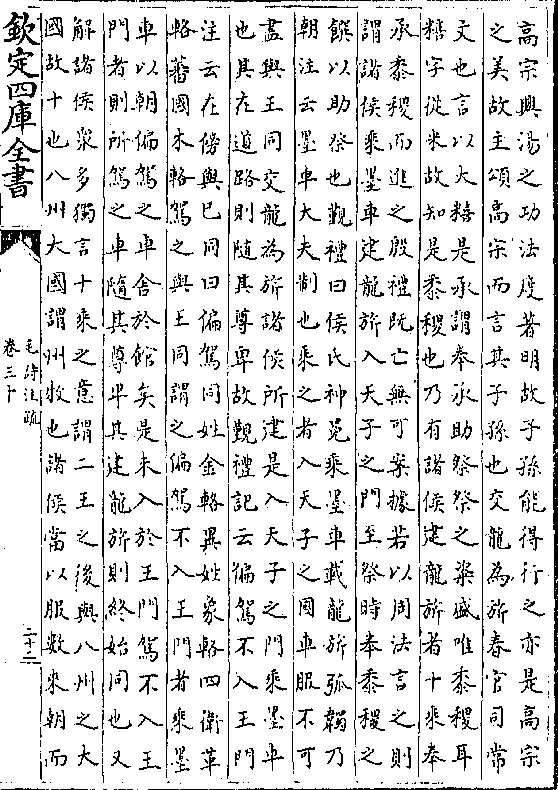 高宗興湯之功法度著明故子孫能得行之亦是高宗
之美故主頌高宗而言其子孫也交龍為旂春官司常
文也言以大糦是承謂奉承助祭祭之粢盛唯黍稷耳
糦字從米故知是黍稷也乃有諸侯建龍旂者十乘奉
承黍稷而進之殷禮既亡無可案據若以周法言之則
謂諸侯乘墨車建龍旂入天子之門至祭時奉黍稷之
饌以助祭也覲禮曰侯氏裨冕乘墨車載龍旂弧韣乃
朝注云墨車大夫制也乘之者入天子之國車服不可
盡與王同交龍為旂諸侯所建是入天子之門乘墨車
也其在道路則隨其尊卑故覲禮記云偏駕不入王門
注云在傍與已同曰偏駕同姓金輅異姓象輅四衛革
輅蕃國木輅駕之與王同謂之偏駕不入王門者乘墨
車以朝偏駕之車舍於館矣是未入於王門駕不入王
門者則所駕之車隨其尊卑其建龍旂則終始同也又
解諸侯衆多獨言十乘之意謂二王之後與八州之大
國故十也八州大國謂州牧也諸侯當以服數來朝而
欽定四庫全書
毛詩注疏
卷三十
二十三